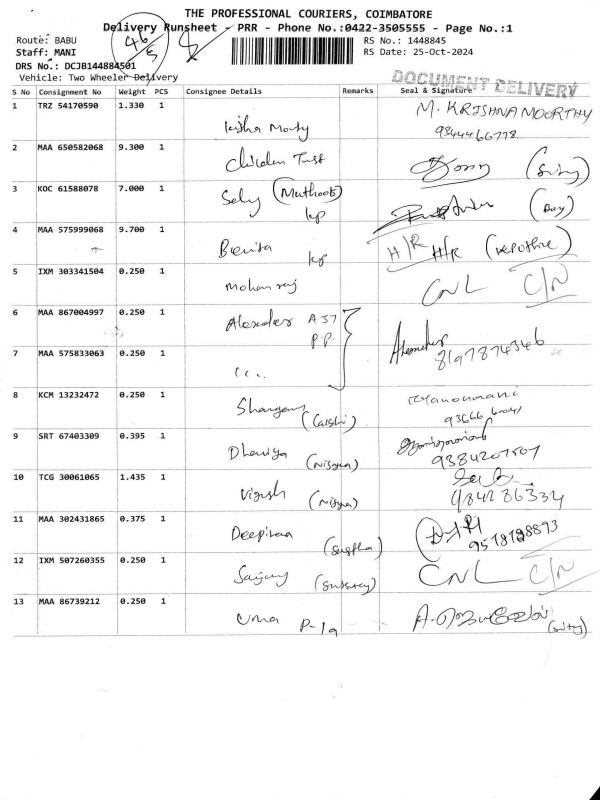 THE PROFESSIONAL COURIERS, COIMBATORE
Delivery Runsheet - PRR - Phone No.:0422-3505555 - Page No.:1
Route: BABU
RS No.: 1448845
Staff: MANI
RS Date: 25-Oct-2024
DRS No.: DCJB144884501
Vehicle: Two Wheeler Delivery
DOCUMENT DELIVERY
S No Consignment No Weight PCS Consignee Details Remarks Seal & Signature
1 TRZ 54170590 1.330 1 M. KRISHNAMOORTHY
9344466778
2 MAA 650582068 9.300 1 Children Trust
3 KOC 61588078 7.000 1 Selvy (Muthoot)
kp
4 MAA 575999068 9.700 1 Benita kp H/R H/R
5 IXM 303341504 0.250 1 Mohan raj CNL C/N
6 MAA 867004997 0.250 1 Alexander A 37
P.P.
8197874346
7 MAA 575833063 0.250 1
8 KCM 13232472 0.250 1
9 SRT 67403309 0.395 1 Dhaniya
9384207507
10 TCG 30061065 1.435 1 Vignesh
984286334
11 MAA 302431865 0.375 1 Deepikaa
9578188893
12 IXM 507260355 0.250 1 Sanjay CNL C/N
13 MAA 86739212 0.250 1 Uma P-19